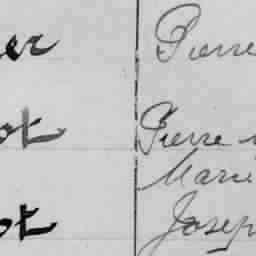 er Pierre
ot Pierre
Marie
ot Josep